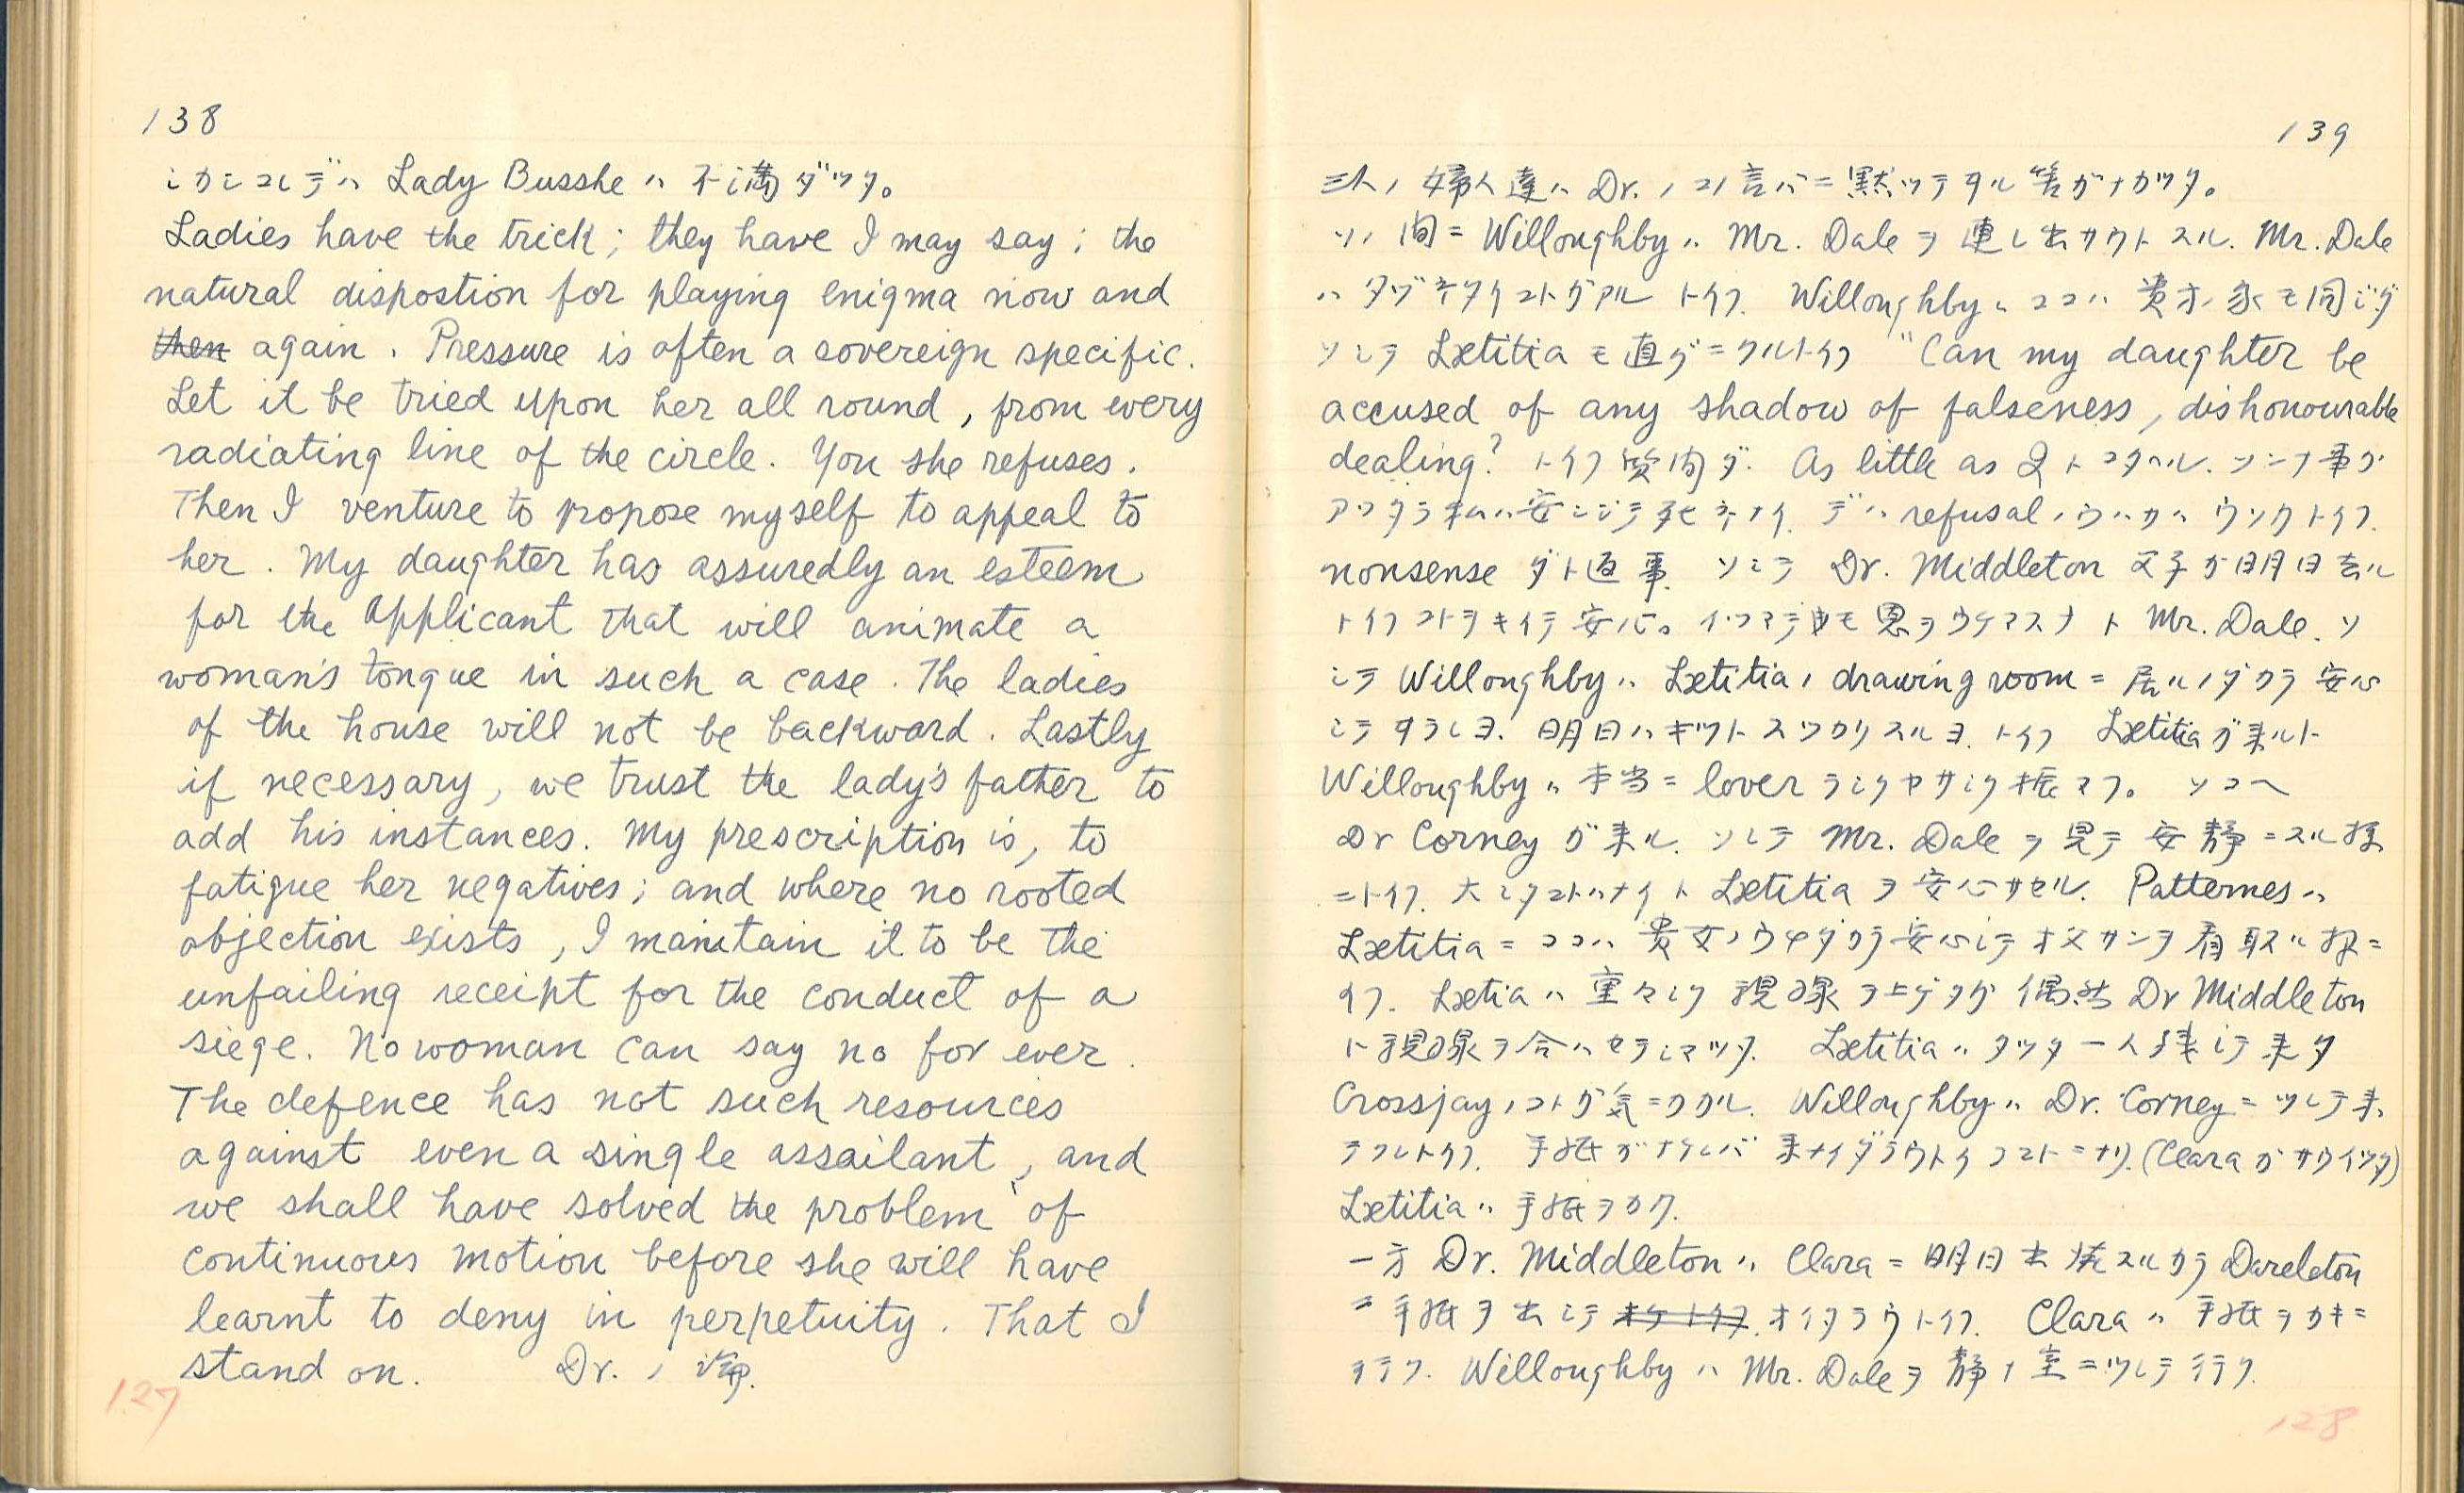 138
シカシコレデハ Lady Busshe ハ 不満ダッタ。
Ladies have the trick; they have I may say; the
natural dispostion for playing enigma now and
then again. Pressure is often a sovereign specific.
Let it be tried upon her all round, from every
radiating line of the circle. You she refuses.
Then I venture to propose myself to appeal to
her. My daughter has assuredly an esteem
for the applicant that will animate a
woman's tongue in such a case. The ladies
of the house will not be backward. Lastly
if necessary, we trust the lady's father to
add his instances. My prescription is, to
fatigue her negatives; and where no rooted
objection exists, I maintain it to be the
unfailing receipt for the conduct of a
siege. No woman can say no for ever.
The defence has not such resources
against even a single assailant, and
we shall have solved the problem of
continuous motion before she will have
learnt to deny in perpetuity. That I
stand on. Dr. ノ
127
139
三人ノ婦人達ハ Dr. ノコノ言バニ黙ッテヲル筈ガナカッタ。
ソノ間ニ Willoughby ハ Mr. Dale ヲ連レ出サウトスル. Mr. Dale
ハタヅネタイコトガアルトイフ. Willoughby ハ ココハ貴方ノ家モ同ジダ
ソシテ Lætitia モ直グニクルトイフ "Can my daughter be
accused of any shadow of falseness, dishonourable
dealing? トイフ質問ダ. As little as I トコタヘル. ソンナ事ガ
アッタラ私ハ安ンジテ死ネナイ. デハ refusal ノウハサハウソカトイフ.
nonsense ダト返事. ソシテ Dr. Middleton 父子ガ明日去ル
トイフコトヲキイテ安心。イツマデモ恩ヲウケマスナト Mr. Dale. ソ
シテ Willoughby ハ Lætitia ハ drawing room ニ居ルノダカラ安心
シテヲラレヨ. 明日ハキットスッカリスルヨ. トイフ Lætitia ガ来ルト
Willoughby ハ本当ニ lover ラシクヤサシク振マフ。 ソコヘ
Dr Corney ガ来ル. ソシテ Mr. Dale ヲ見テ安静ニスル様
ニトイフ. 大シタコトハナイト Lætitia ヲ安心サセル. Patternes ハ
Lætitia ニ ココハ貴女ノウチダカラ安心シテオ父サンヲ看取ル様ニ
イフ. Lætia ハ重々シク視線ヲ上ゲタガ偶然 Dr Middleton
ト視線ヲ合ハセテシマッタ. Lætitia ハタッター人残シテ来タ
Crossjay ノコトガ気ニカカル. Willoughby ハ Dr. Corney ニツレテ来
テクレトイフ. 手紙ガナケレバ来ナイダラウトイフコトニナリ. (Clara ガサウイッタ)
Lætitia ハ手紙ヲカク.
一方 Dr. Middleton ハ Clara ニ明日出発スルカラ Dareleton
ニ手紙ヲ出シテオケトイフ. オイタラウトイフ. Clara ハ手紙ヲカキニ
行ク. Willoughby ハ Mr. Dale ヲ静ナ室ニツレテ行ク.
128